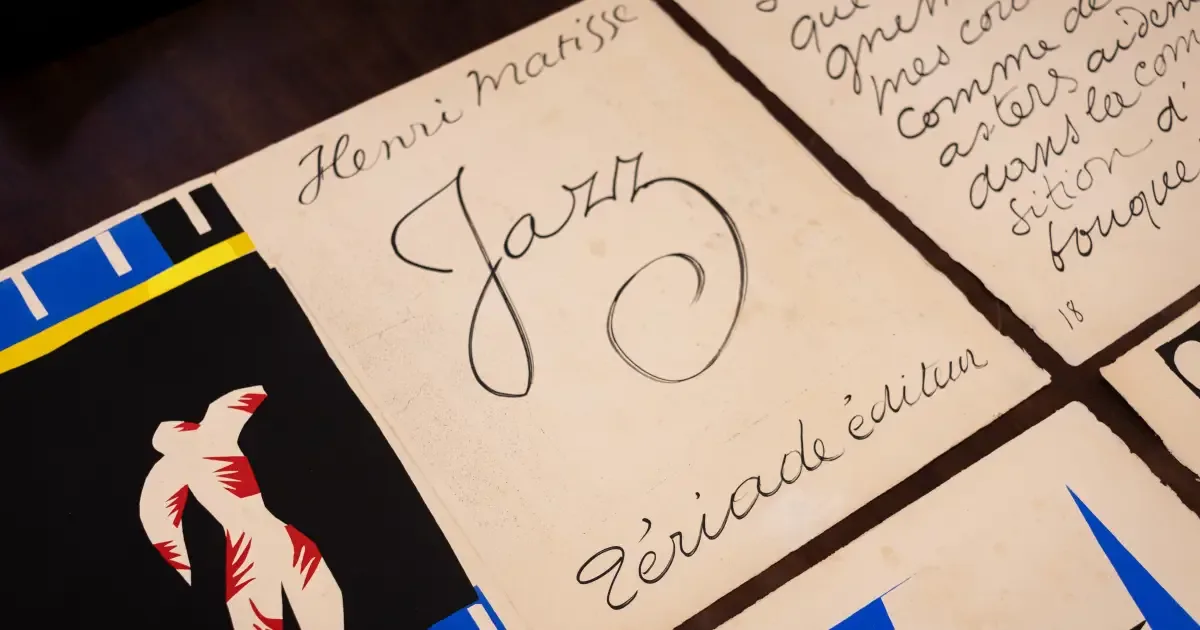 Henri Matisse
Jazz
Tériade éditeur
que
mes
comme de
asters aident
dans la com
sition d'
bouque
18